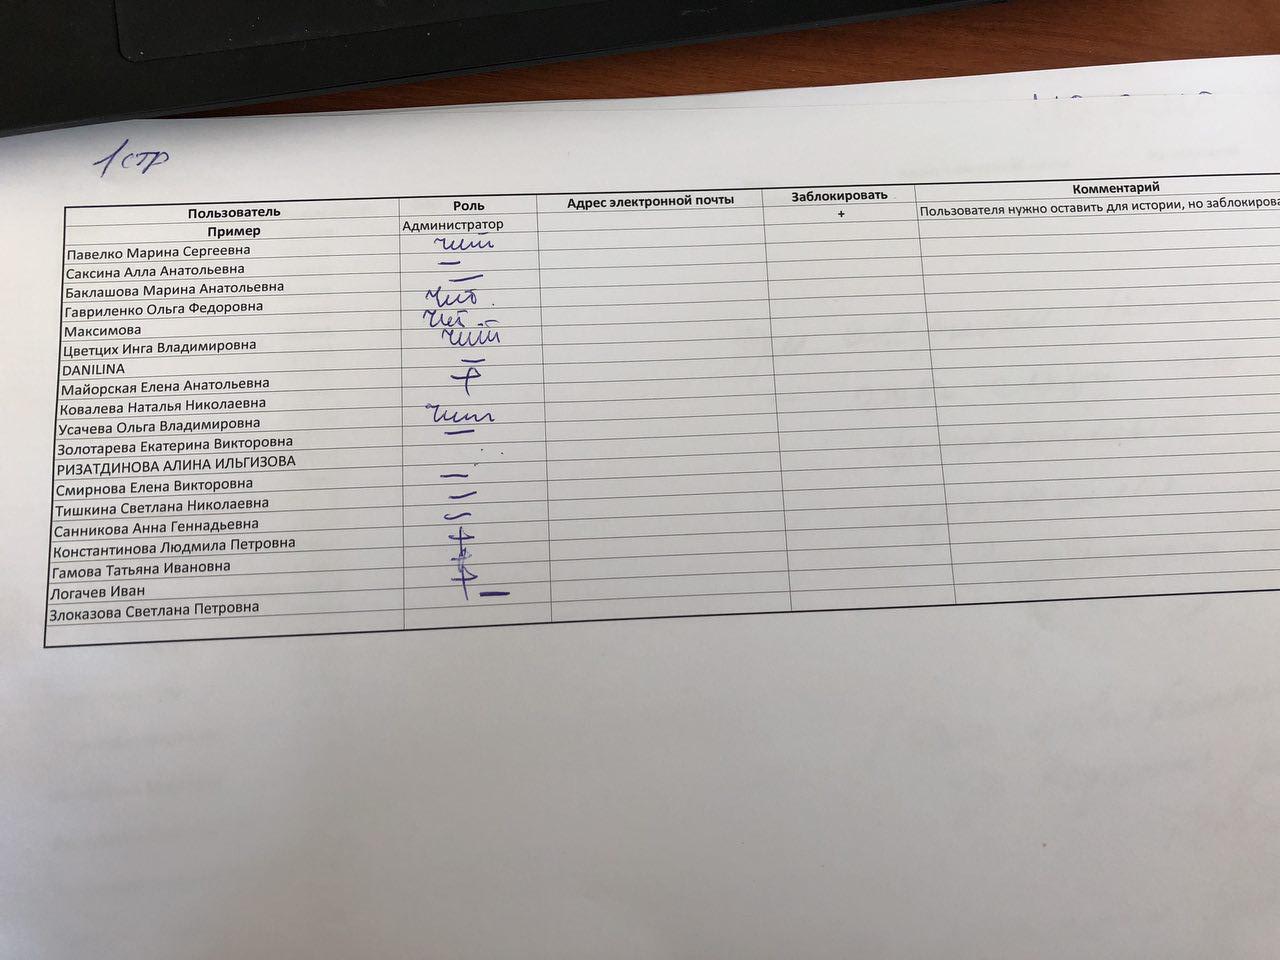 1 стр
Пользователь Роль Адрес электронной почты Заблокировать Комментарий
Пример Администратор + Пользователя нужно оставить для истории, но заблокирова
Павелко Марина Сергеевна чит
Саксина Алла Анатольевна —
Баклашова Марина Анатольевна —
Гавриленко Ольга Федоровна чит.
Максимова чит
Цветцих Инга Владимировна чит
DANILINA —
Майорская Елена Анатольевна +
Ковалева Наталья Николаевна
Усачева Ольга Владимировна чит
Золотарева Екатерина Викторовна —
РИЗАТДИНОВА АЛИНА ИЛЬГИЗОВА
Смирнова Елена Викторовна —
Тишкина Светлана Николаевна —
Санникова Анна Геннадьевна —
Константинова Людмила Петровна +
Гамова Татьяна Ивановна +
Логачев Иван +
Злоказова Светлана Петровна —